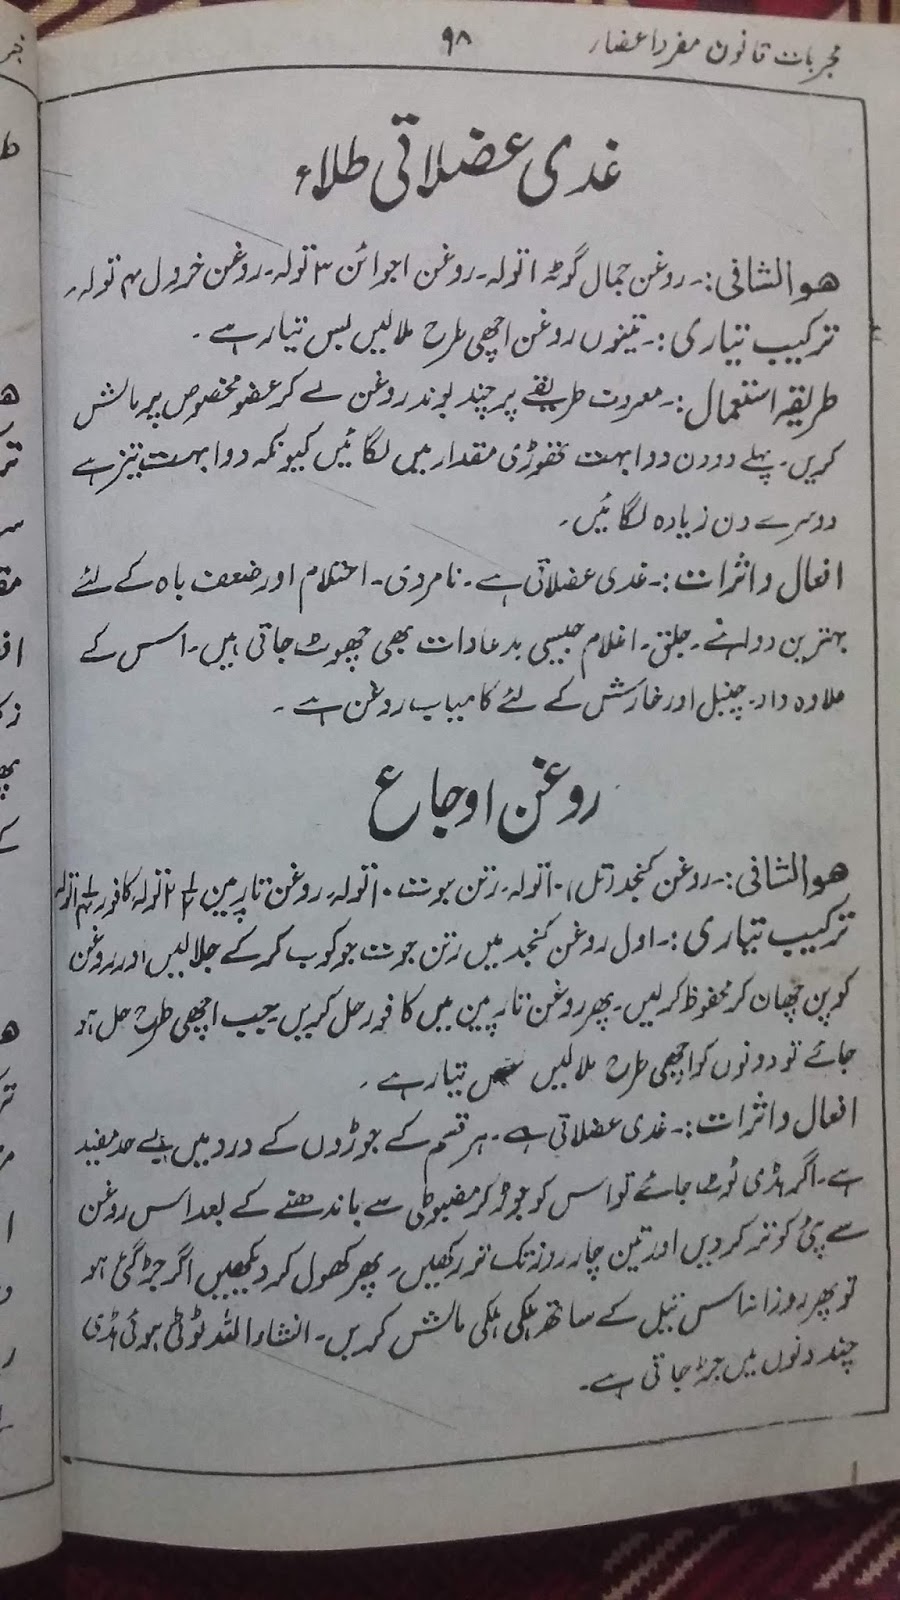 مجربات قانون مفرد اعضاء ۹۸
غدی عضلاتی طلاء
ھوالشافی:۔ روغن جمال گوٹہ ۱ تولہ۔ روغن اجوائن ۳ تولہ۔ روغن خردل ۴ تولہ۔
ترکیب تیاری:۔ تینوں روغن اچھی طرح ملالیں بس تیار ہے۔
طریقہ استعمال:۔ معروف طریقے پر چند بوند روغن لے کر عضو مخصوص پر مالش
کریں۔ پہلے دو دن دوا بہت تھوڑی مقدار میں لگائیں کیونکہ دوا بہت تیز ہے
دوسرے دن زیادہ لگائیں۔
افعال و اثرات:۔ غدی عضلاتی ہے۔ نامردی۔ احتلام اور ضعف باہ کے لئے
بہترین دوا ہے۔ جلق۔ اغلام جیسی بدعادات بھی چھوٹ جاتی ہیں۔ اس کے
علاوہ داد۔ چنبل اور خارش کے لئے کامیاب روغن ہے۔
روغن اوجاع
ھوالشافی:۔ روغن کنجد (تل) ۱۰ تولہ۔ رتن جوت ۱۰ تولہ۔ روغن تارپین ۲½ تولہ کافور تولہ
ترکیب تیاری:۔ اول روغن کنجد میں رتن جوت جو کوب کر کے جلالیں اور روغن
کو پن چھان کر محفوظ کرلیں۔ پھر روغن تارپین میں کافور حل کریں۔ جب اچھی طرح حل ہو
جائے تو دونوں کو اچھی طرح ملالیں تیار ہے۔
افعال و اثرات:۔ غدی عضلاتی ہے۔ ہر قسم کے جوڑوں کے درد میں بے حد مفید
ہے۔ اگر ہڈی ٹوٹ جائے تو اس کو جوڑ کر مضبوطی سے باندھنے کے بعد اس روغن
سے پٹی کو تر کردیں اور تین چار روز تک تر رکھیں۔ پھر کھول کر دیکھیں اگر جڑ گئی ہو
تو پھر روزانہ اس تیل کے ساتھ ہلکی ہلکی مالش کریں۔ انشاء اللہ ٹوٹی ہوئی ہڈی
چند دنوں میں جڑ جاتی ہے۔